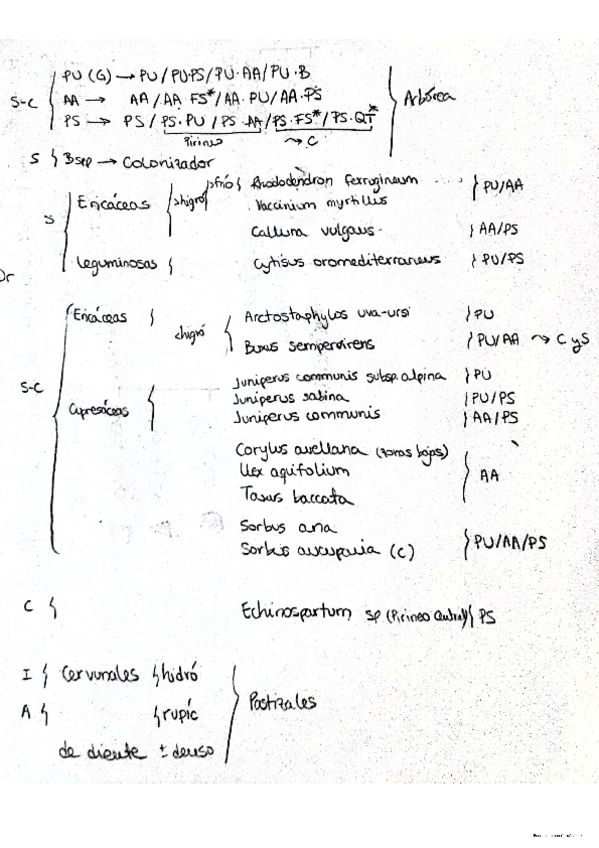 S-C { PU (G) → PU / PU·PS / PU·AA / PU·B
AA → AA / AA FS* / AA·PU / AA·PS
PS → PS / PS·PU / PS·AA / PS·FS* / PS·QT*
} Arbórea
Pirineo → C
S { Bsep → Colonizador
S { Ericáceas } shigróf pfrío { Rhododendron ferrugineum } PU/AA
Vaccinium myrtillus
Calluna vulgaris } AA/PS
Leguminosas { Cytisus oromediterraneus } PU/PS
Or
S-C { Ericáceas } chigró { Arctostaphylos uva-ursi } PU
Buxus sempervirens } PU/AA → C y S
Cupresáceas { Juniperus communis subsp. alpina } PU
Juniperus sabina } PU/PS
Juniperus communis } AA/PS
Corylus avellana (zonas bajas)
Ilex aquifolium } AA
Taxus baccata
Sorbus aria
Sorbus aucuparia (C) } PU/AA/PS
C { Echinospartum sp (Pirineo Central) } PS
I { Cervunales } hidró
A { } rupíc
} Pastizales
de diente ± denso